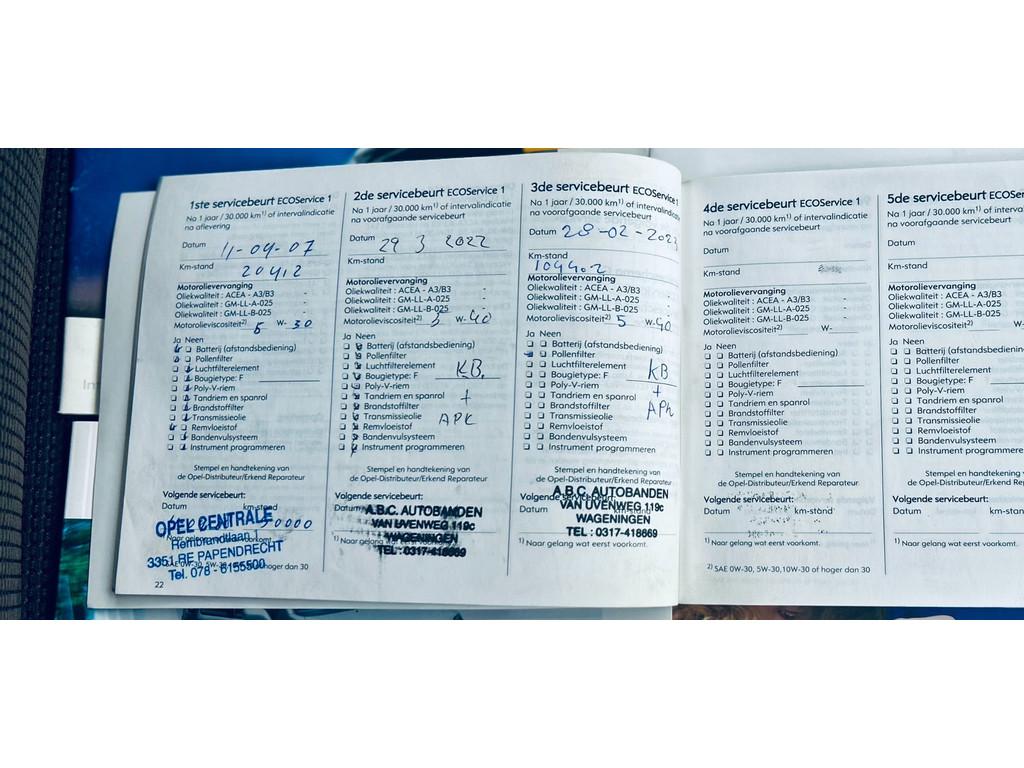 1ste servicebeurt ECOService 1
Na 1 jaar / 30.000 km1) of intervalindicatie
na aflevering
Datum 11-09-07
Km-stand 20412
Motorolievervanging
Oliekwaliteit : ACEA - A3/B3 -
Oliekwaliteit : GM-LL-A-025 -
Oliekwaliteit : GM-LL-B-025 -
Motorolieviscositeit2) 5 W- 30
Ja Neen
Batterij (afstandsbediening)
Pollenfilter
Luchtfilterelement
Bougietype: F
Poly-V-riem
Tandriem en spanrol
Brandstoffilter
Transmissieolie
Remvloeistof
Bandenvulsysteem
Instrument programmeren
Stempel en handtekening van
de Opel-Distributeur/Erkend Reparateur
Volgende servicebeurt:
Datum km-stand
OPEL CENTRALE
Rembrandtlaan
3351 RE PAPENDRECHT
Tel. 078 - 6155500
22
2de servicebeurt ECOService 1
Na 1 jaar / 30.000 km1) of intervalindicatie
na voorafgaande servicebeurt
Datum 29 3 2022
Km-stand
Motorolievervanging
Oliekwaliteit : ACEA - A3/B3 -
Oliekwaliteit : GM-LL-A-025 -
Oliekwaliteit : GM-LL-B-025 -
Motorolieviscositeit2) 5 W-40
Ja Neen
Batterij (afstandsbediening)
Pollenfilter
Luchtfilterelement KB.
Bougietype: F
Poly-V-riem
Tandriem en spanrol +
Brandstoffilter
Transmissieolie APK
Remvloeistof
Bandenvulsysteem
Instrument programmeren
Stempel en handtekening van
de Opel-Distributeur/Erkend Reparateur
Volgende servicebeurt:
Datum
A.B.C. AUTOBANDEN
VAN UVENWEG 119c
WAGENINGEN
TEL : 0317-418669
1) Naar gelang wat eerst voorkomt.
3de servicebeurt ECOService
Na 1 jaar / 30.000 km1) of intervalindicatie
na voorafgaande servicebeurt
Datum 28-02-2023
Km-stand 104402
Motorolievervanging
Oliekwaliteit : ACEA - A3/B3 -
Oliekwaliteit : GM-LL-A-025 -
Oliekwaliteit : GM-LL-B-025 -
Motorolieviscositeit2) 5 W-40
Ja Neen
Batterij (afstandsbediening)
Pollenfilter
Luchtfilterelement KB
Bougietype: F
Poly-V-riem +
Tandriem en spanrol
Brandstoffilter APK
Transmissieolie
Remvloeistof
Bandenvulsysteem
Instrument programmeren
Stempel en handtekening van
de Opel-Distributeur/Erkend Reparateur
Volgende servicebeurt:
Datum km-stand
A.B.C. AUTOBANDEN
VAN UVENWEG 119c
WAGENINGEN
TEL : 0317-418669
1) Naar gelang wat eerst voorkomt.
4de servicebeurt ECOService 1
Na 1 jaar / 30.000 km1) of intervalindicatie
na voorafgaande servicebeurt
Datum
Km-stand
Motorolievervanging
Oliekwaliteit : ACEA - A3/B3 -
Oliekwaliteit : GM-LL-A-025 -
Oliekwaliteit : GM-LL-B-025 -
Motorolieviscositeit2) W-
Ja Neen
Batterij (afstandsbediening)
Pollenfilter
Luchtfilterelement
Bougietype: F
Poly-V-riem
Tandriem en spanrol
Brandstoffilter
Transmissieolie
Remvloeistof
Bandenvulsysteem
Instrument programmeren
Stempel en handtekening van
de Opel-Distributeur/Erkend Reparateur
Volgende servicebeurt:
Datum km-stand
1) Naar gelang wat eerst voorkomt.
2) SAE 0W-30, 5W-30,10W-30 of hoger dan 30
5de servicebeurt ECOServ
Na 1 jaar / 30.000 km1) of interval
na voorafgaande servicebeurt
Datum
Km-stand
Motorolievervanging
Oliekwaliteit : ACEA - A3/B3
Oliekwaliteit : GM-LL-A-025
Oliekwaliteit : GM-LL-B-025
Motorolieviscositeit2) W-
Ja Neen
Batterij (afstandsbedienin
Pollenfilter
Luchtfilterelement
Bougietype: F
Poly-V-riem
Tandriem en spanrol
Brandstoffilter
Transmissieolie
Remvloeistof
Bandenvulsysteem
Instrument programmere
Stempel en handtekening
de Opel-Distributeur/Erkend R
Volgende servicebeurt:
Datum km-stan
1) Naar gelang wat eerst voork